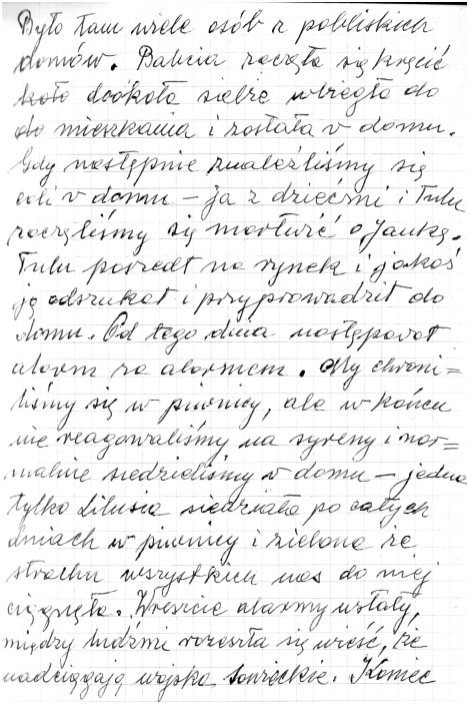 Było tam wiele osób z pobliskich
domów. Babcia zaczęła się kręcić
koło dookoła siebie wbiegła do
do mieszkania i została w domu.
Gdy następnie znaleźliśmy się
cali w domu – ja z dziećmi i Tulu
zaczęliśmy się martwić o Jankę.
Tulu poszedł na rynek i jakoś
ją odszukał i przyprowadził do
domu. Od tego dnia następował
alarm za alarmem. My chroni=
liśmy się w piwnicy, ale w końcu
nie reagowaliśmy na syreny i nor=
malnie siedzieliśmy w domu – jedna
tylko Lilusia siedziała po całych
dniach w piwnicy i zielona ze
strachu wszystkich nas do niej
ciągnęła. Wreszcie alarmy ustały,
między ludźmi rozeszła się wieść, że
nadciągają wojska sowieckie. Koniec